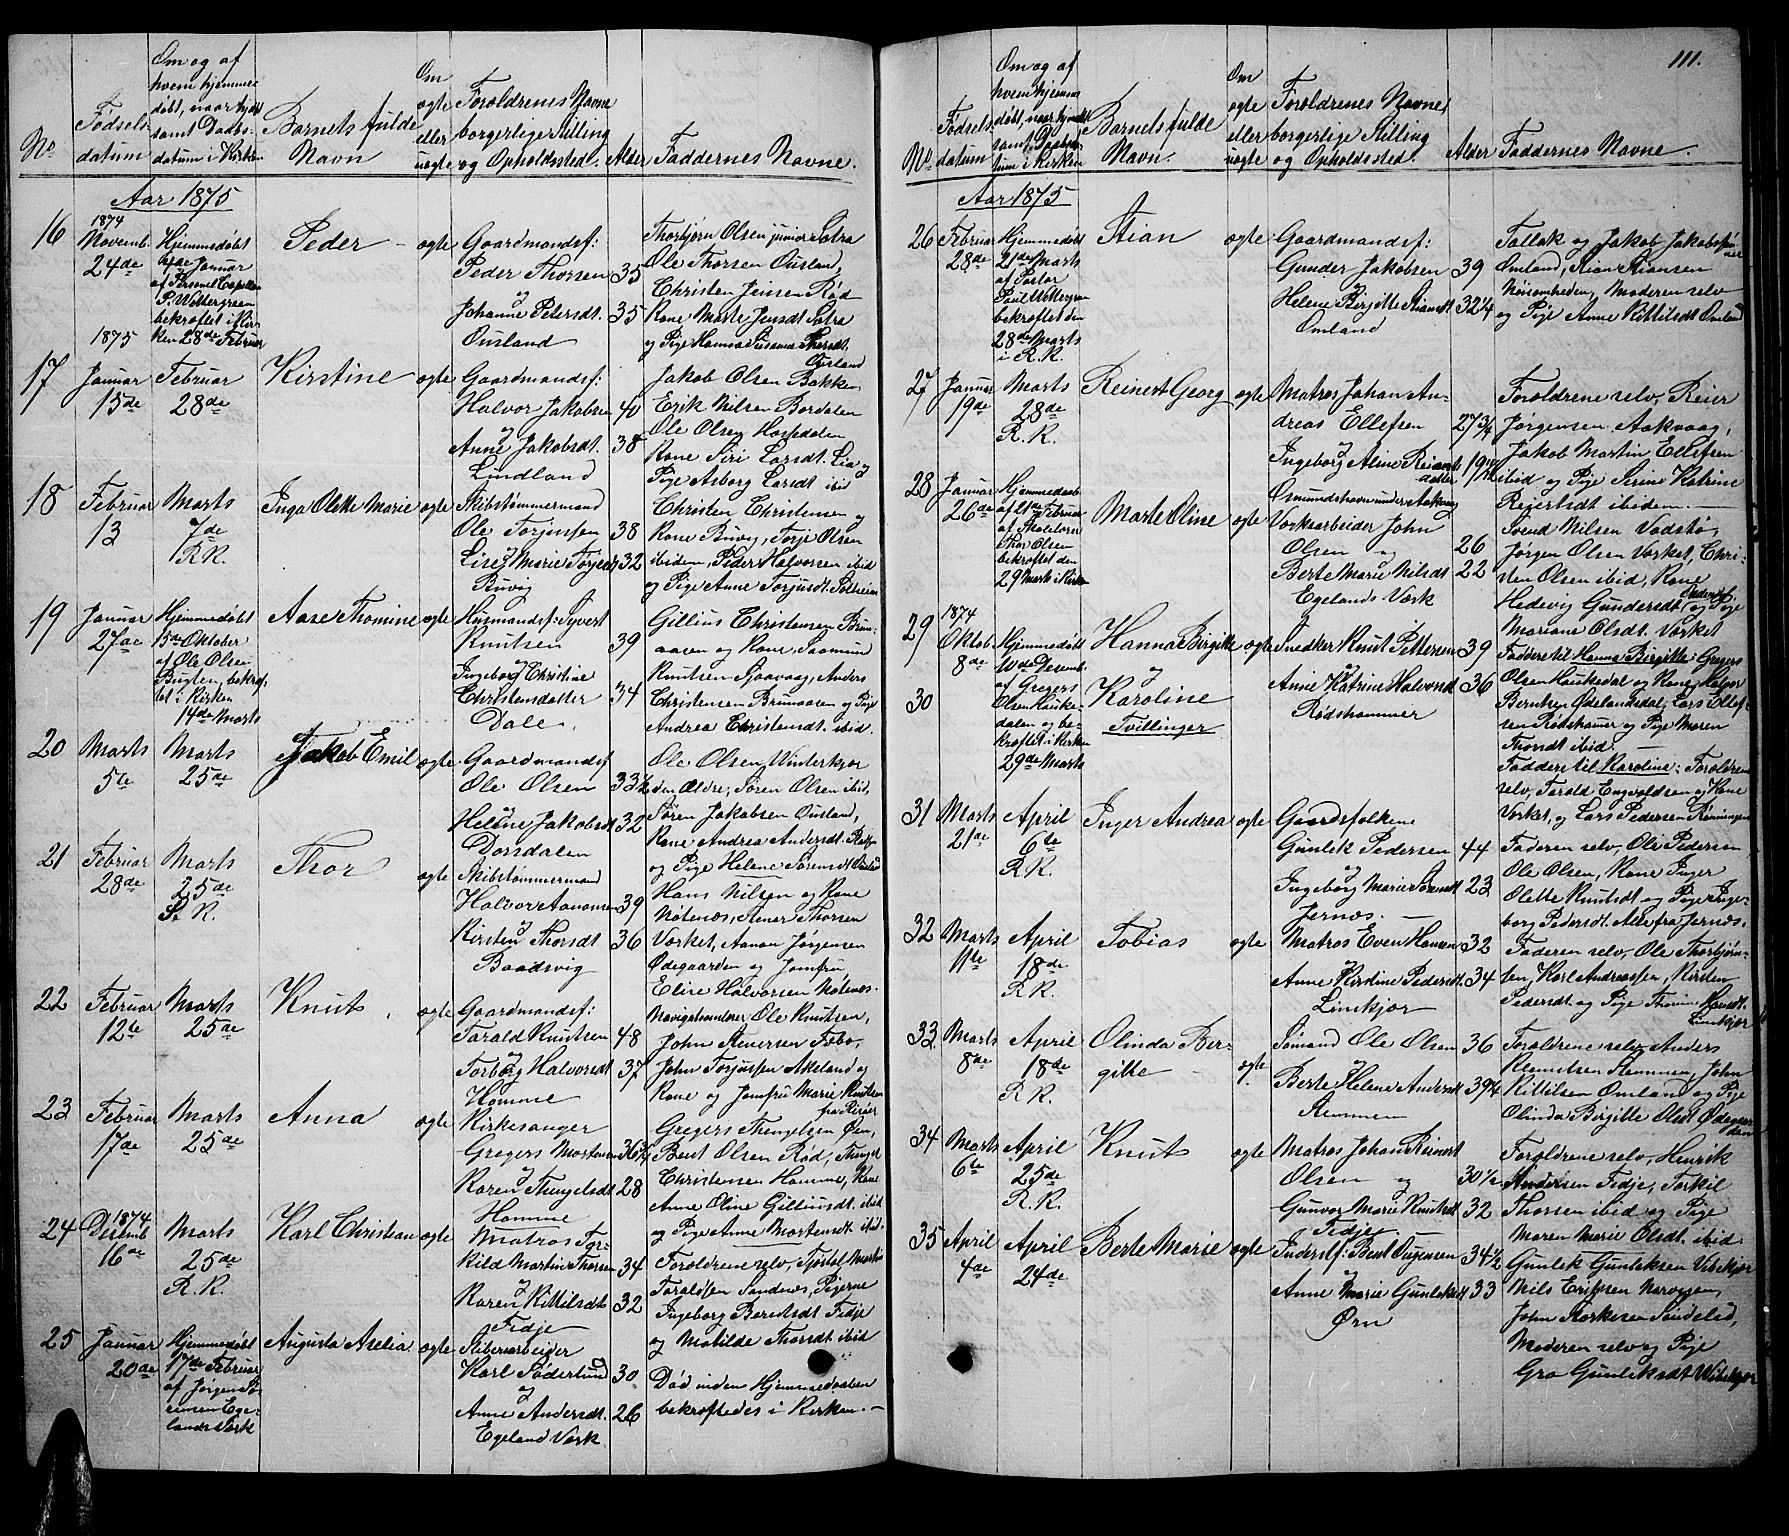 No
Fødsels-
datum
Om og af
hvem hjemme
døbt, naar hjdt
samt Daabs-
datum i Kirken
Barnets fulde
Navn
Om
ægte
eller
uægte
Forældrenes Navne
borgerlige Stilling
og Opholdssted.
Alder
Faddernes Navne.
Aar 1875
16
1874
Novemb.
24de
Hjemmedøbt
Januar
af Personel Capellan
P. Wettergreen
bekræftet i Kir-
ken 28de Februar
Peder
ægte
Gaardmandsf:
Peder Thorsen 35
og
Johanne Petersdt. 35
Ousland
Thorbjørn Olsen junior Sætra
Ole Thorsen Ousland,
Christen Jensen Rød
Kone Marte Jensdt Sætra
og Pige Hanna Susanne Thorsdt
Ousland
1875
17
Januar
15de
Februar
28de
Kirstine
ægte
Gaardmandsf:
Halvor Jakobsen 40
og
Anne Jakobsdt. 38
Lindland
Jakob Olsen Bakke
Erik Nilsen Bordalen
Ole Olsen Hassedalen
Kone Siri Larsdt. Lia og
Pige Asborg Larsdt ibid
18
Februar
13
Marts
7de
R.K.
Inga Olette Marie
ægte
Skibstømmermand
Ole Torjussen 38
og
Lise Marie Torjusdt 32
Buvig
Christen Christensen og
Kone Buvig, Torje Olsen
ibidem, Peder Halvorsen ibid
og Pige Anne Torjusdt. Solheim
19
Januar
27de
Hjemmedøbt
15de Oktober
af Ole Olsen
Bugten, bekræf-
tet i Kirken
14de Marts
Aase Thomine
ægte
Husmandsf: Syvert
Knutsen 39
og
Ingeborg Christine
Christensdatter 34
Dale.
Gillius Christensen Brun-
aaren og Kone, Saamund
Knutsen Sjaavaag, Anders
Christensen Brunaaren og Pige
Andrea Christensdt. ibid.
20
Marts
5te
Marts
25de
Jakob Emil
ægte
Gaardmandsf
Ole Olsen 33½
og
Helene Jakobsdt 32
Dorsdalen
Ole Olsen Vinterkjær
den Ældre, Søren Olsen ibid,
Søren Jakobsen Ousland,
Kone Andrea Andersdt.
og Pige Helene Sørensdt
21
Februar
28de
Marts
25de
S. K.
Thor
ægte
Skibstømmermand
Halvor Aanonsen 39
og
Kirsten Thorsdt 36
Baadsvig
Hans Nilsen og Kone
Nøtenæs, Aener Thorsen
Værket, Aanon Jørgensen
Ødegaarden og Jomfru
Elise Halvorsen Nøtenæs.
22
Februar
12te
Marts
25de
Knut
ægte
Gaardmandsf:
Tarald Knutsen 48
og
Torborg Halvorsdt 37
Homme
Navigationslærer Ole Knutsen,
John Stenersen Fæbo,
John Torjussen Akeland og
Kone og Jomfru Marie Knutsen
fra Risør
23
Februar
17de
Marts
25de
Anna
ægte
Kirkesanger
Gregers Mortensen 36¾
og
Karen Thengelsdt 28
Homme
Gregers Thengelsen Øen,
Bent Olsen Rød, Thengel
Christensen Homme, Kone
Anne Oline Gilliusdt. ibid
og Pige Anne Mortensdt ibid.
24
1874
Desemb
16de
Marts
25de
R.K.
Karl Christian
ægte
Matros Tor-
kild Martin Thorsen 34
og
Karen Kittilsdt 32
Fidje
Forældrene selv, Tjøstol
Taraldsen Sandnes, Pigerne
Ingeborg Berentsdt Fidje
og Matilde Thorsdt ibid
25
Januar
20de
Hjemmedøbt
17de Februar
af Jørgen Sø-
rensen Ege-
lands Værk
Augusta Aselia
ægte
Karl Söderlund 30
og
Anne Andersdt. 26
Egeland Værk
Død inden Hjemmedaaben
bekræftedes i Kirken.
111.
No.
Fødsels-
datum
Om og af
hvem hjemme
døbt, naar hjmdt
samt Daabsda-
tum i Kirken
Barnets fulde
Navn.
Om
ægte
eller
uægte
Forældrenes Navne,
borgerlige Stilling
og Opholdssted.
Alder
Faddernes Navne.
Aar 1875
26
Februar
28de
Hjemmedøbt
21de Marts
af Pastor
Paul Wettergreen
bekræftet den
28de Marts
i R.K.
Stian
ægte
Gaardmandsf:
Gunder Jakobsen 39
og
Helene Birgitte Stiansdt 32¼
Omland
Tallak og Jakob Jakobsen
Omland, Stian Stiansen
Nøisomheden, Moderen selv
og Pige Anne Kittilsdt Omland
27
Januar
19de
Marts
28de
R.K.
Reinert Georg
ægte
Matros Johan An-
dreas Ellefsen 27¾
og
Ingeborg Aline Reinert
datter
Osmundshavn under Aakvaag
Forældrene selv, Reier
Jørgensen Aakvaag,
Jakob Martin Ellefsen
ibid og Pige Serine Katrine
Reiersdt ibidem.
28
Januar
26de
Hjemmedøbt
af 21de Februar
af Skolelærer
Thor Olsen
bekræftet den
29 Marts i Kirken
Marte Oline
ægte
Værksarbeider John
Olsen og 26
Berte Marie Nilsdt 22
Egelands Værk
Svend Nilsen Vadstø,
Jørgen Olsen Værket, Chri-
sten Olsen ibid, Kone
Hedevig Gundersdt, og Pige
Mariane Olsdt. Værket
29
1874
Oktob
8de
Hjemmedøbt
10de Desemb.
af Gregers
Olsen Hauke-
dalen og be-
kræftet i Kirken
29de Marts
Hanna Birgitte
og
30
Karoline
Tvillinger
ægte
Snedker Knut Pettersen 39
og
Anne Katrine Halvorsdt 36
Rødshammer
Fadderetil Hanna Birgitte: Gregers
Olsen Haukedal og Kone, Halvor
Berntsen Ødelandsdal, Lars Ellef-
sen Rødshamer og Pige Maren
Thorsdt ibid.
Fadderetil Karoline: Forældren
selv, Tarald Engvoldsen og Kone
Værket, og Lars Pedersen Rønningen
31
Marts
21de
April
6te
R.K.
Inger Andrea
ægte
Gaardsfolkene
Gunlek Pedersen 44
og
Ingeborg Marie Sørensdt 23
Jernæs.
Faderen selv, Ole Pedersen
Ole Olsen, Kone Inger
Olette Knutsdt og Pige Inge-
borg Pedersdt. Alle fra Jernæs.
32
Marts
11te
April
18de
R.K.
Tobias
ægte
Matros Even Hansen 32
Anne Kirstine Pedersdt. 34
Linkjær
Faderen selv, Ole Thorbjørn-
sen, Karl Andreassen, Kirsten
Pedersdt. og Pige Thomine Hansdt.
Linkjær
33
Marts
8de
April
18de
R.K.
Olinda Bir-
gitte
ægte
Sømand Ole Olsen 36
og
Berte Helene Andersdt 39¼
Stemmen
Forældrene selv, Anders
Klemetsen Stemmen, John
Kittilsen Omland og Pige
Olinda Birgitte Olsdt Ødegaar-
den
34
Marts
6te
April
25de
R.K.
Knut
ægte
Matros Johan Reinert
Olsen og 30½
Gunvor Marie Knutsdt 32
Fidje
Forældrene selv, Henrik
Andersen Fidje, Torkil
Thorsen ibid og Pige
Maren Marie Olsdt. ibid.
35
April
4de
April
24de
Berte Marie
ægte
Inderstf: Bent Jørgensen 34½
og
Anne Marie Gunleksdt 33
Ørn
Gunlek Gunleksen Vibekjær
Nils Eriksen Narvesen,
John Størkersen Sandslid,
Moderen selv og Pige
Gro Gunleksdt Wibekjær